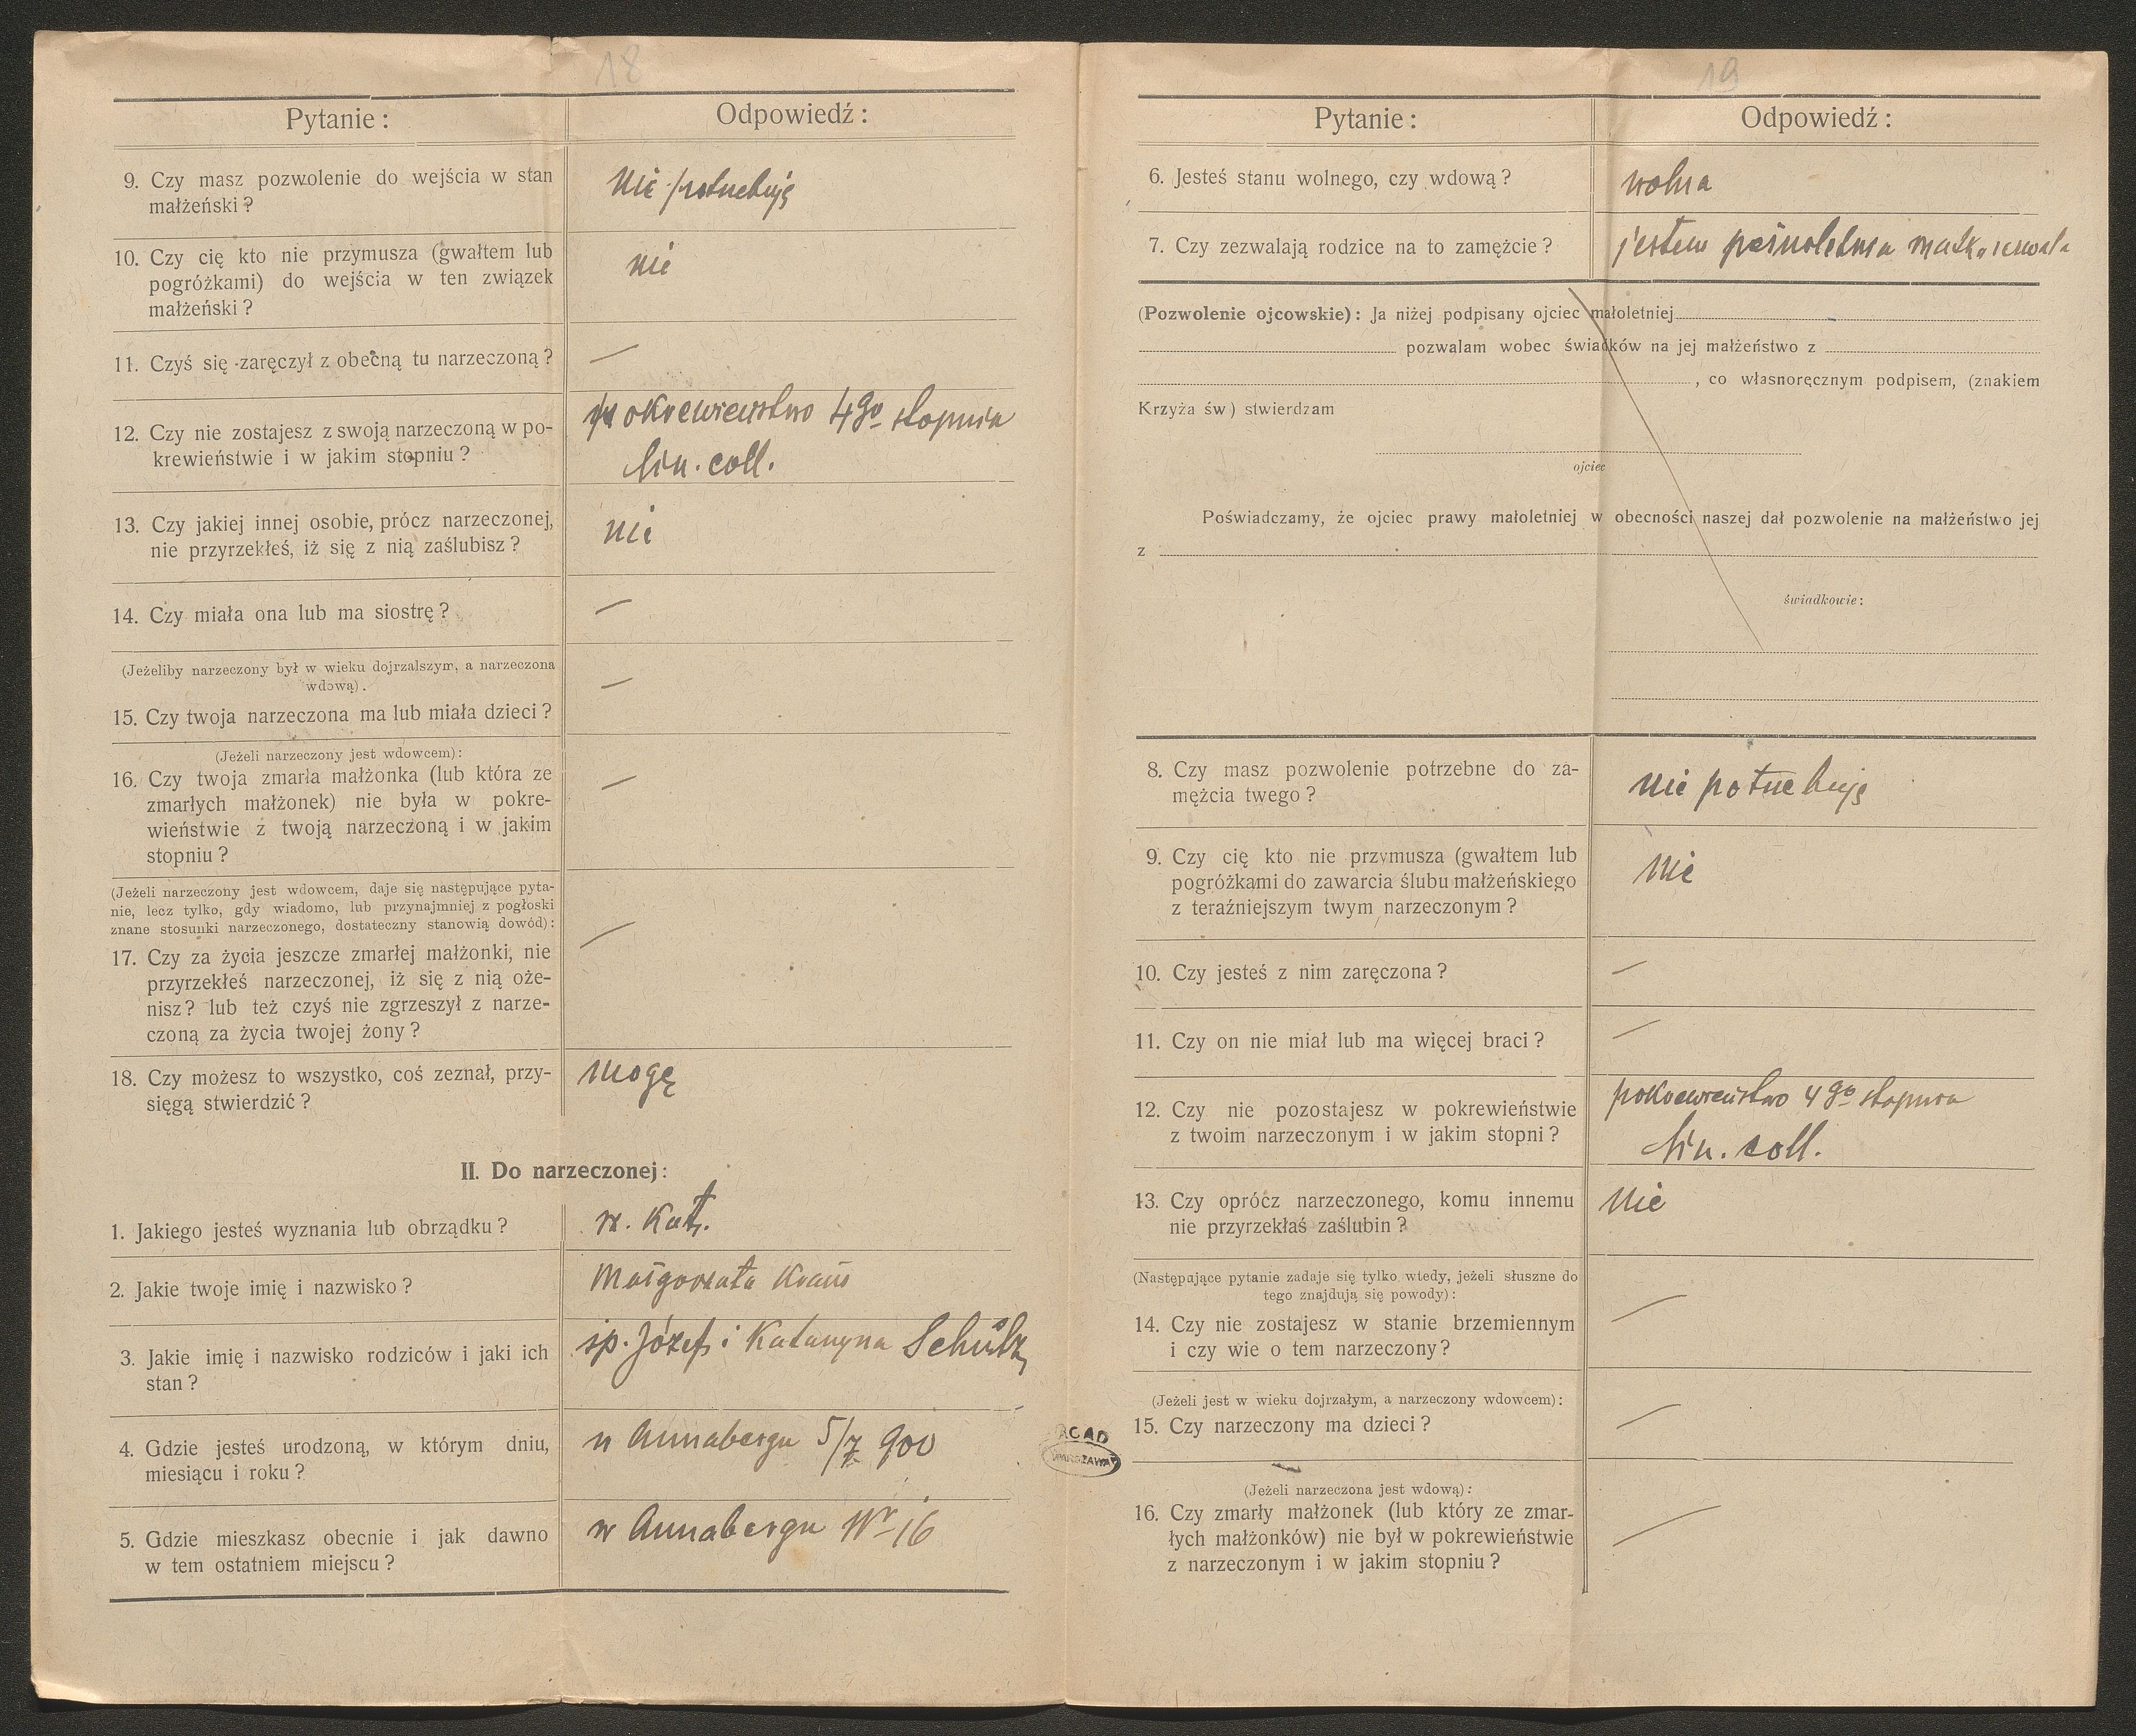 18
Pytanie:
Odpowiedź:
9. Czy masz pozwolenie do wejścia w stan
małżeński?
nie potrzebuję
10. Czy cię kto nie przymusza (gwałtem lub
pogróżkami) do wejścia w ten związek
małżeński?
nie
11. Czyś się zaręczył z obecną tu narzeczoną?
—
12. Czy nie zostajesz z swoją narzeczoną w po-
krewieństwie i w jakim stopniu?
pokrewieństwo 4go stopnia
lin. coll.
13. Czy jakiej innej osobie, prócz narzeczonej,
nie przyrzekłeś, iż się z nią zaślubisz?
nie
14. Czy miała ona lub ma siostrę?
—
(Jeżeliby narzeczony był w wieku dojrzalszym, a narzeczona
wdową).
15. Czy twoja narzeczona ma lub miała dzieci?
—
(Jeżeli narzeczony jest wdowcem):
16. Czy twoja zmarła małżonka (lub która ze
zmarłych małżonek) nie była w pokre-
wieństwie z twoją narzeczoną i w jakim
stopniu?
—
(Jeżeli narzeczony jest wdowcem, daje się następujące pyta-
nie, lecz tylko, gdy wiadomo, lub przynajmniej z pogłoski
znane stosunki narzeczonego, dostateczny stanowią dowód):
17. Czy za życia jeszcze zmarłej małżonki, nie
przyrzekłeś narzeczonej, iż się z nią oże-
nisz? lub też czyś nie zgrzeszył z narze-
czoną za życia twojej żony?
—
18. Czy możesz to wszystko, coś zeznał, przy-
sięgą stwierdzić?
mogę
II. Do narzeczonej:
1. Jakiego jesteś wyznania lub obrządku?
rz. kat.
2. Jakie twoje imię i nazwisko?
Małgorzata Kraus
3. Jakie imię i nazwisko rodziców i jaki ich
stan?
śp. Józef i Katarzyna Schütz
4. Gdzie jesteś urodzoną, w którym dniu,
miesiącu i roku?
w Annabergu 5/7 900
5. Gdzie mieszkasz obecnie i jak dawno
w tem ostatniem miejscu?
w Annabergu Nr 16
19
Pytanie:
Odpowiedź:
6. Jesteś stanu wolnego, czy wdową?
wolna
7. Czy zezwalają rodzice na to zamężcie?
jestem pełnoletnia matka zezwala
(Pozwolenie ojcowskie): Ja niżej podpisany ojciec małoletniej
pozwalam wobec świadków na jej małżeństwo z
, co własnoręcznym podpisem, (znakiem
Krzyża św) stwierdzam
ojciec
Poświadczamy, że ojciec prawy małoletniej w obecności naszej dał pozwolenie na małżeństwo jej
z
świadkowie:
8. Czy masz pozwolenie potrzebne do za-
mężcia twego?
nie potrzebuję
9. Czy cię kto nie przymusza (gwałtem lub
pogróżkami do zawarcia ślubu małżeńskiego
z teraźniejszym twym narzeczonym?
nie
10. Czy jesteś z nim zaręczona?
—
11. Czy on nie miał lub ma więcej braci?
—
12. Czy nie pozostajesz w pokrewieństwie
z twoim narzeczonym i w jakim stopni?
pokrewieństwo 4go stopnia
lin. coll.
13. Czy oprócz narzeczonego, komu innemu
nie przyrzekłaś zaślubin?
nie
(Następujące pytanie zadaje się tylko wtedy, jeżeli słuszne do
tego znajdują się powody):
14. Czy nie zostajesz w stanie brzemiennym
i czy wie o tem narzeczony?
—
(Jeżeli jest w wieku dojrzałym, a narzeczony wdowcem):
15. Czy narzeczony ma dzieci?
—
AGAD
WARSZAWA
(Jeżeli narzeczona jest wdową):
16. Czy zmarły małżonek (lub który ze zmar-
łych małżonków) nie był w pokrewieństwie
z narzeczonym i w jakim stopniu?
—